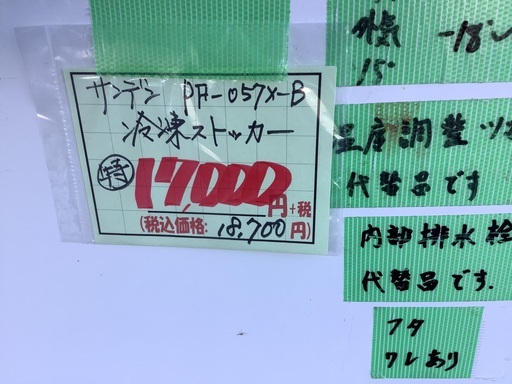 サンデン PF-057X-B
冷凍ストッカー
特 17,000円+税
(税込価格: 18,700円)
外気 -18℃
15°
温度調整ツマ
代替品です
内部排水栓
代替品です.
フタ
ワレあり